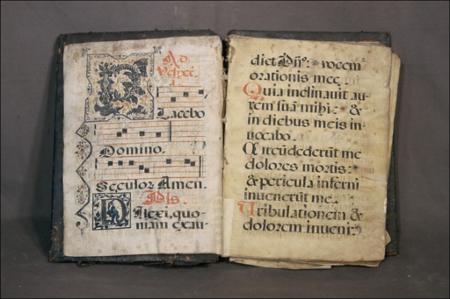 Ad
Placebo
Domino.
Seculor Amen.
Ps.
Dilexi, quo
niam exau
diet Dñs: vocem
orationis meę.
Quia inclinauit au
rem suā mihi: &
in diebus meis in
uocabo.
Circūdederūt me
dolores mortis:
& pericula inferni
inuenerūt me.
Tribulationem &
dolorem inueni: